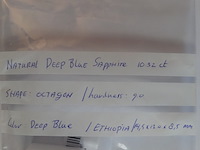 Natural Deep Blue Sapphire 10.32 ct
Shape: octagon / hardness: 9.0
Color: Deep Blue / Ethiopia / x 8,5 mm